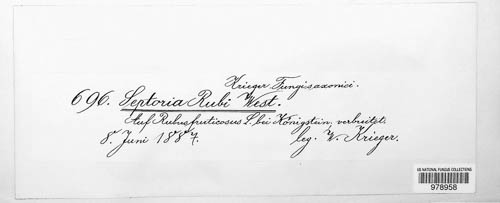 Krieger Fungi saxonici.
696. Septoria Rubi West.
Auf Rubus fruticosus L. bei Königstein, verbreitet.
8. Juni 1887. leg. W. Krieger.
US NATIONAL FUNGUS COLLECTIONS
978958